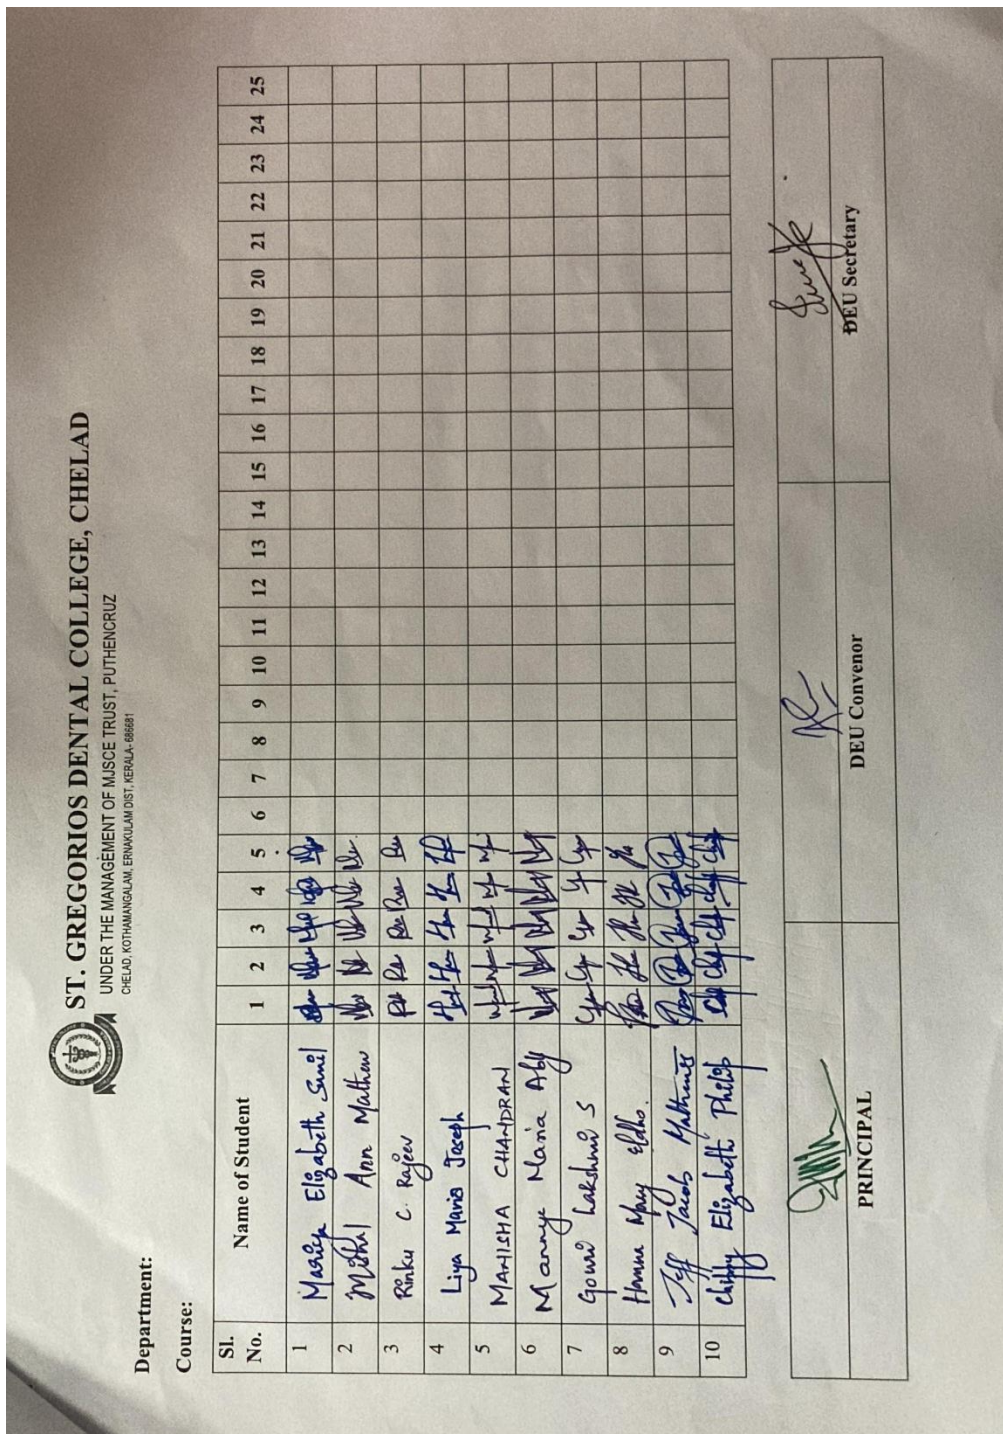 ST. GREGORIOS DENTAL COLLEGE, CHELAD
UNDER THE MANAGEMENT OF MJSCE TRUST, PUTHENCRUZ
CHELAD, KOTHAMANGALAM, ERNAKULAM DIST, KERALA- 686681
Department:
Course:
Sl. No. Name of Student 1 2 3 4 5 6 7 8 9 10 11 12 13 14 15 16 17 18 19 20 21 22 23 24 25
1 Elizabeth Sunil
2 Ann Mathew
3 Rinku C. Rajeev
4 Liya Maria Joseph
5 MANISHA CHANDRAN
6 Maria Aby
7 Gouri Lakshmi S
8 Hanna Mary Eldho.
9 Jeff Jacob
10 Chippy Elizabeth Philip
PRINCIPAL DEU Convenor DEU Secretary